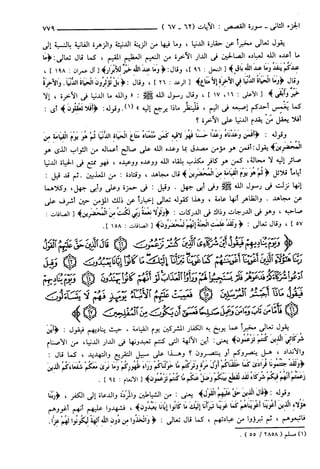 الجزء الثاني - سورة القصص : الآيات (٦٢ - ٦٧) ٧٧٩
يقول تعالى مخبراً عن حقارة الدنيا ، وما فيها من الزينة الدنيئة والزهرة الفانية بالنسبة إلى
ما أعده الله لعباده الصالحين في الدار الآخرة من النعيم العظيم المقيم ، كما قال تعالى : ﴿ ما
عندكم ينفد وما عند الله باق ﴾ [ النحل : ٩٦ ] ، وقال : ﴿ وما عند الله خير للأبرار ﴾ [ آل عمران : ١٩٨ ] ،
وقال ﴿ وما الحياة الدنيا في الآخرة إلا متاع ﴾ [ الرعد : ٢٦ ] ، وقال : ﴿ بل تؤثرون الحياة الدنيا . والآخرة
خير وأبقى ﴾ [ الأعلى : ١٦ ، ١٧ ] ، وقال رسول الله ﷺ : « والله ما الدنيا في الآخرة ، إلا
كما يغمس أحدكم إصبعه في اليم ، فلينظر ماذا يرجع إليه » (١) . وقوله : ﴿ أفلا تعقلون ﴾ أي :
أفلا يعقل من يقدم الدنيا على الآخرة ؟
وقوله : ﴿ أفمن وعدناه وعداً حسناً فهو لاقيه كمن متعناه متاع الحياة الدنيا ثم هو يوم القيامة من
المحضرين ﴾ يقول : أفمن هو مؤمن مصدق بما وعده الله على صالح أعماله من الثواب الذي هو
صائر إليه لا محالة، كمن هو كافر مكذب بلقاء الله ووعده ووعيده ، فهو ممتع في الحياة الدنيا
أياماً قلائل ﴿ ثم هو يوم القيامة من المحضرين ﴾ قال مجاهد ، وقتادة : من المعذبين . ثم قد قيل :
إنها نزلت في رسول الله ﷺ وفي أبي جهل . وقيل : في حمزة وعلي وأبي جهل، وكلاهما
عن مجاهد . والظاهر أنها عامة ، وهذا كقوله تعالى إخباراً عن ذلك المؤمن حين أشرف على
صاحبه ، وهو في الدرجات وذاك في الدركات : ﴿ ولولا نعمة ربي لكنت من المحضرين ﴾ [ الصافات :
٥٧ ] ، وقال تعالى : ﴿ ولقد علمت الجنة إنهم لمحضرون ﴾ [ الصافات : ١٥٨ ] .
يقول تعالى مخبراً عما يوبخ به الكفار المشركين يوم القيامة ، حيث يناديهم فيقول : ﴿ أين
شركائي الذين كنتم تزعمون ﴾ يعني : أين الآلهة التي كنتم تعبدونها في الدار الدنيا، من الأصنام
والأنداد ، هل ينصرونكم أو ينتصرون ؟ وهذا على سبيل التقريع والتهديد ، كما قال :
﴿ ولقد جئتمونا فرادى كما خلقناكم أول مرة وتركتم ما خولناكم وراء ظهوركم وما نرى معكم شفعاءكم الذين
زعمتم أنهم فيكم شركاء لقد تقطع بينكم وضل عنكم ما كنتم تزعمون ﴾ [ الأنعام : ٩٤ ] .
وقوله : ﴿ قال الذين حق عليهم القول ﴾ يعني : من الشياطين والمردة والدعاة إلى الكفر ، ﴿ ربنا
هؤلاء الذين أغوينا أغويناهم كما غوينا تبرأنا إليك ما كانوا إيانا يعبدون ﴾ ، فشهدوا عليهم أنهم أغووهم
فاتبعوهم ، ثم تبرؤوا من عبادتهم ، كما قال تعالى : ﴿ واتخذوا من دون الله آلهة ليكونوا لهم عزاً .
(١) مسلم ( ٢٨٥٨ / ٥٥ ) .